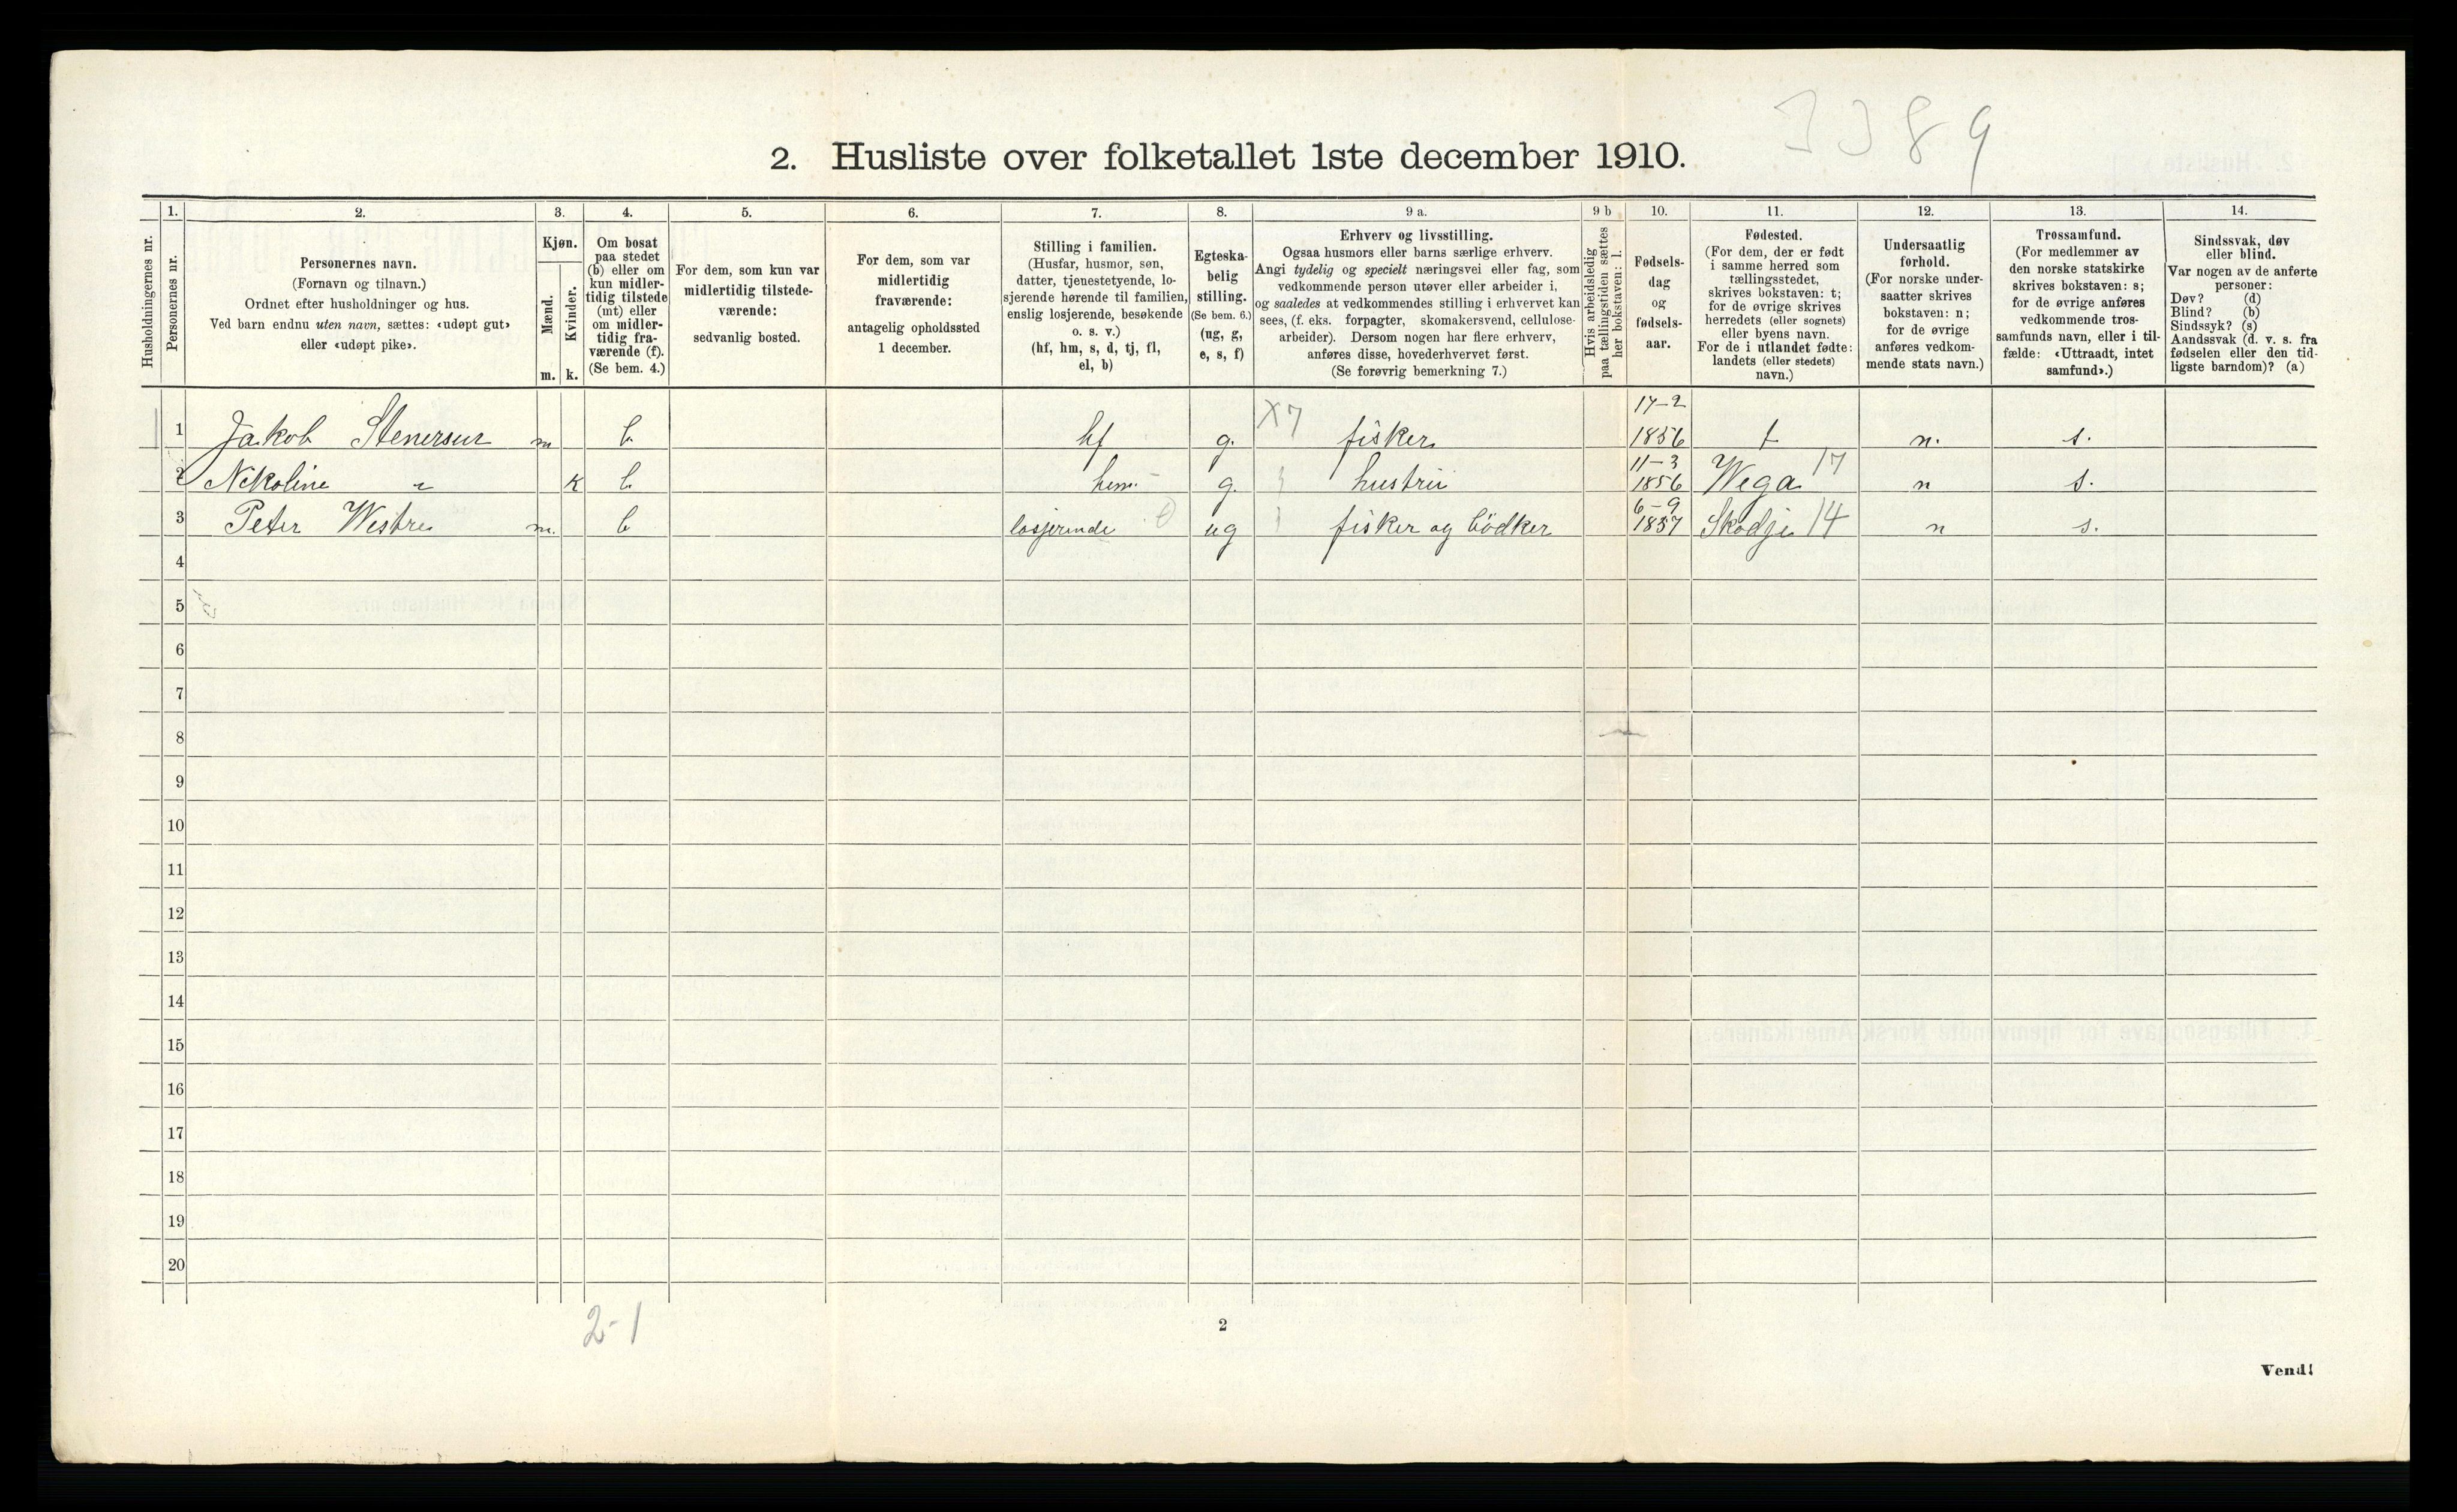 3389
2. Husliste over folketallet 1ste december 1910.
Husholdningernes nr.
1.
Personernes nr.
2.
Personernes navn.
(Fornavn og tilnavn.)
Ordnet efter husholdninger og hus.
Ved barn endnu uten navn, sættes: «udøpt gut»
eller «udøpt pike».
3.
Kjøn.
Mænd.
Kvinder.
m. k.
4.
Om bosat
paa stedet
(b) eller om
kun midler-
tidig tilstede
(mt) eller
om midler-
tidig fra-
værende (f).
(Se bem. 4.)
5.
For dem, som kun var
midlertidig tilstede-
værende:
sedvanlig bosted.
6.
For dem, som var
midlertidig
fraværende:
antagelig opholdssted
1 december.
7.
Stilling i familien.
(Husfar, husmor, søn,
datter, tjenestetyende, lo-
sjerende hørende til familien,
enslig losjerende, besøkende
o. s. v.)
(hf, hm, s, d, tj, fl,
el, b)
8.
Egteska-
belig
stilling.
(Se bem. 6.)
(ug, g,
e, s, f)
9 a.
Erhverv og livsstilling.
Ogsaa husmors eller barns særlige erhverv.
Angi tydelig og specielt næringsvei eller fag, som
vedkommende person utøver eller arbeider i,
og saaledes at vedkommendes stilling i erhvervet kan
sees, (f. eks. forpagter, skomakersvend, cellulose-
arbeider). Dersom nogen har flere erhverv,
anføres disse, hovederhvervet først.
(Se forøvrig bemerkning 7.)
9 b
Hvis arbeidsledig
paa tællingstiden sættes
her bokstaven: l.
10.
Fødsels-
dag
og
fødsels-
aar.
11.
Fødested.
(For dem, der er født
i samme herred som
tællingsstedet,
skrives bokstaven: t;
for de øvrige skrives
herredets (eller sognets)
eller byens navn.
For de i utlandet fødte:
landets (eller stedets)
navn.)
12.
Undersaatlig
forhold.
(For norske under-
saatter skrives
bokstaven: n;
for de øvrige
anføres vedkom-
mende stats navn.)
13.
Trossamfund.
(For medlemmer av
den norske statskirke
skrives bokstaven: s;
for de øvrige anføres
vedkommende tros-
samfunds navn, eller i til-
fælde: «Uttraadt, intet
samfund».)
14.
Sindssvak, døv
eller blind.
Var nogen av de anførte
personer:
Døv? (d)
Blind? (b)
Sindssyk? (s)
Aandssvak (d. v. s. fra
fødselen eller den tid-
ligste barndom)? (a)
1 1 Jakob Stenersen m b hf g. X7 fisker 17-2 1856 t n. s.
2 Nikoline " k b hm. g. hustru 11-3 1856 Wega 17 n s.
3 Peter Westre m. b losjerende ug fisker og bödker 6-9 1837 Skodje 14 n s.
4
5
6
7
8
9
10
11
12
13
14
15
16
17
18
19
20
2-1
2
Vend!